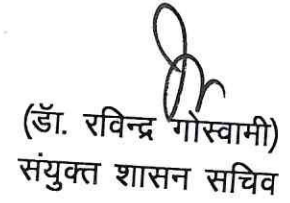 (डॉ. रविन्द्र गोस्वामी)
संयुक्त शासन सचिव